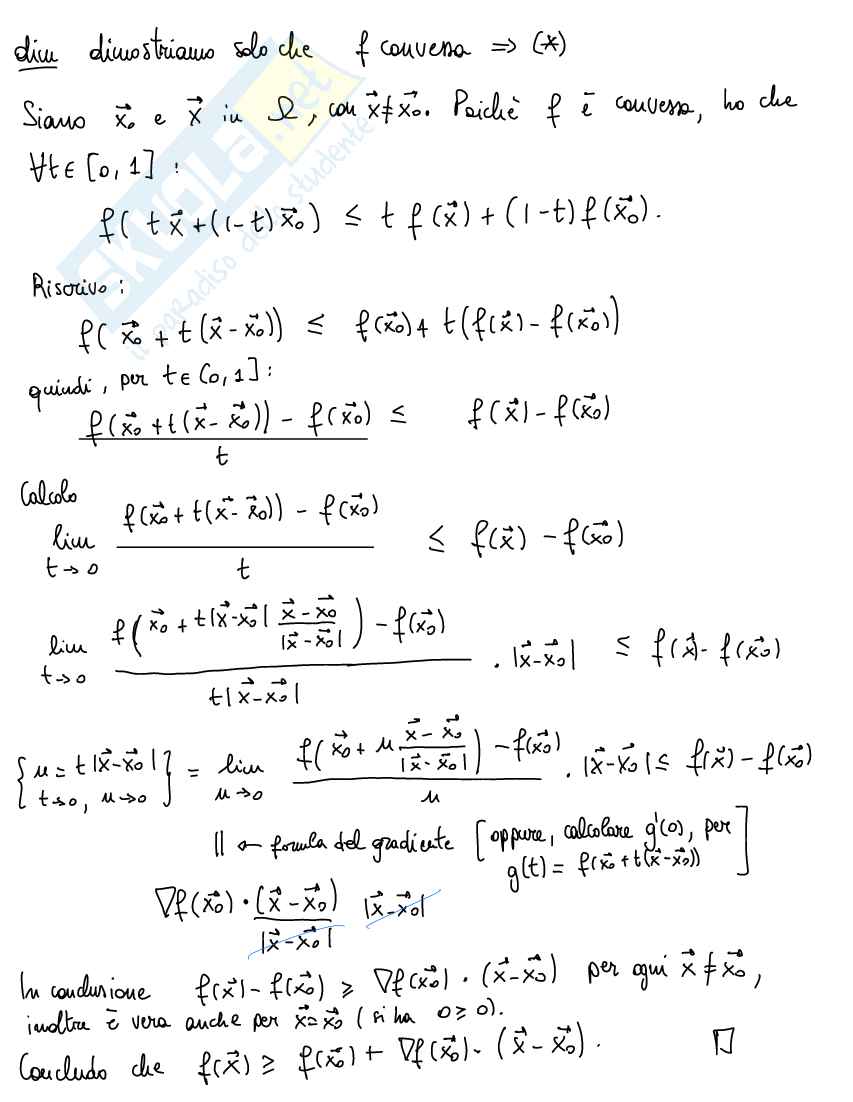 dim dimostriamo solo che f convessa ⇒ (*)
Siano x⃗₀ e x⃗ in Ω, con x⃗≠x⃗₀. Poichè f è convessa, ho che
∀t∈[0,1] :
f( t x⃗ +(1-t) x⃗₀ ) ≤ t f(x⃗) + (1-t) f(x⃗₀).
Riscrivo :
f( x⃗₀ + t(x⃗ - x⃗₀)) ≤ f(x⃗₀) + t(f(x⃗) - f(x⃗₀))
quindi, per t∈(0,1] :
(f(x⃗₀ + t(x⃗ - x⃗₀)) - f(x⃗₀))/t ≤ f(x⃗) - f(x⃗₀)
Calcolo
lim t→0 (f(x⃗₀ + t(x⃗ - x⃗₀)) - f(x⃗₀))/t ≤ f(x⃗) - f(x⃗₀)
lim t→0 (f(x⃗₀ + t|x⃗-x⃗₀| (x⃗ - x⃗₀)/|x⃗ - x⃗₀|) - f(x⃗₀))/(t|x⃗ - x⃗₀|) · |x⃗-x⃗₀| ≤ f(x⃗) - f(x⃗₀)
{u = t|x⃗-x⃗₀| t→0, u→0} = lim u→0 (f(x⃗₀ + u (x⃗ - x⃗₀)/|x⃗ - x⃗₀|) - f(x⃗₀))/u · |x⃗-x⃗₀| ≤ f(x⃗) - f(x⃗₀)
|| ← formula del gradiente [oppure, calcolare g'(0), per
g(t) = f(x⃗₀ + t(x⃗-x⃗₀))]
∇f(x⃗₀) · (x⃗ - x⃗₀)/|x⃗-x⃗₀| |x⃗-x⃗₀|
In conclusione f(x⃗) - f(x⃗₀) ≥ ∇f(x⃗₀) · (x⃗-x⃗₀) per ogni x⃗ ≠ x⃗₀,
inoltre è vera anche per x⃗=x⃗₀ (si ha 0≥0).
Concludo che f(x⃗) ≥ f(x⃗₀) + ∇f(x⃗₀) · (x⃗ - x⃗₀). □
SKUOLA.net
il paradiso dello studente